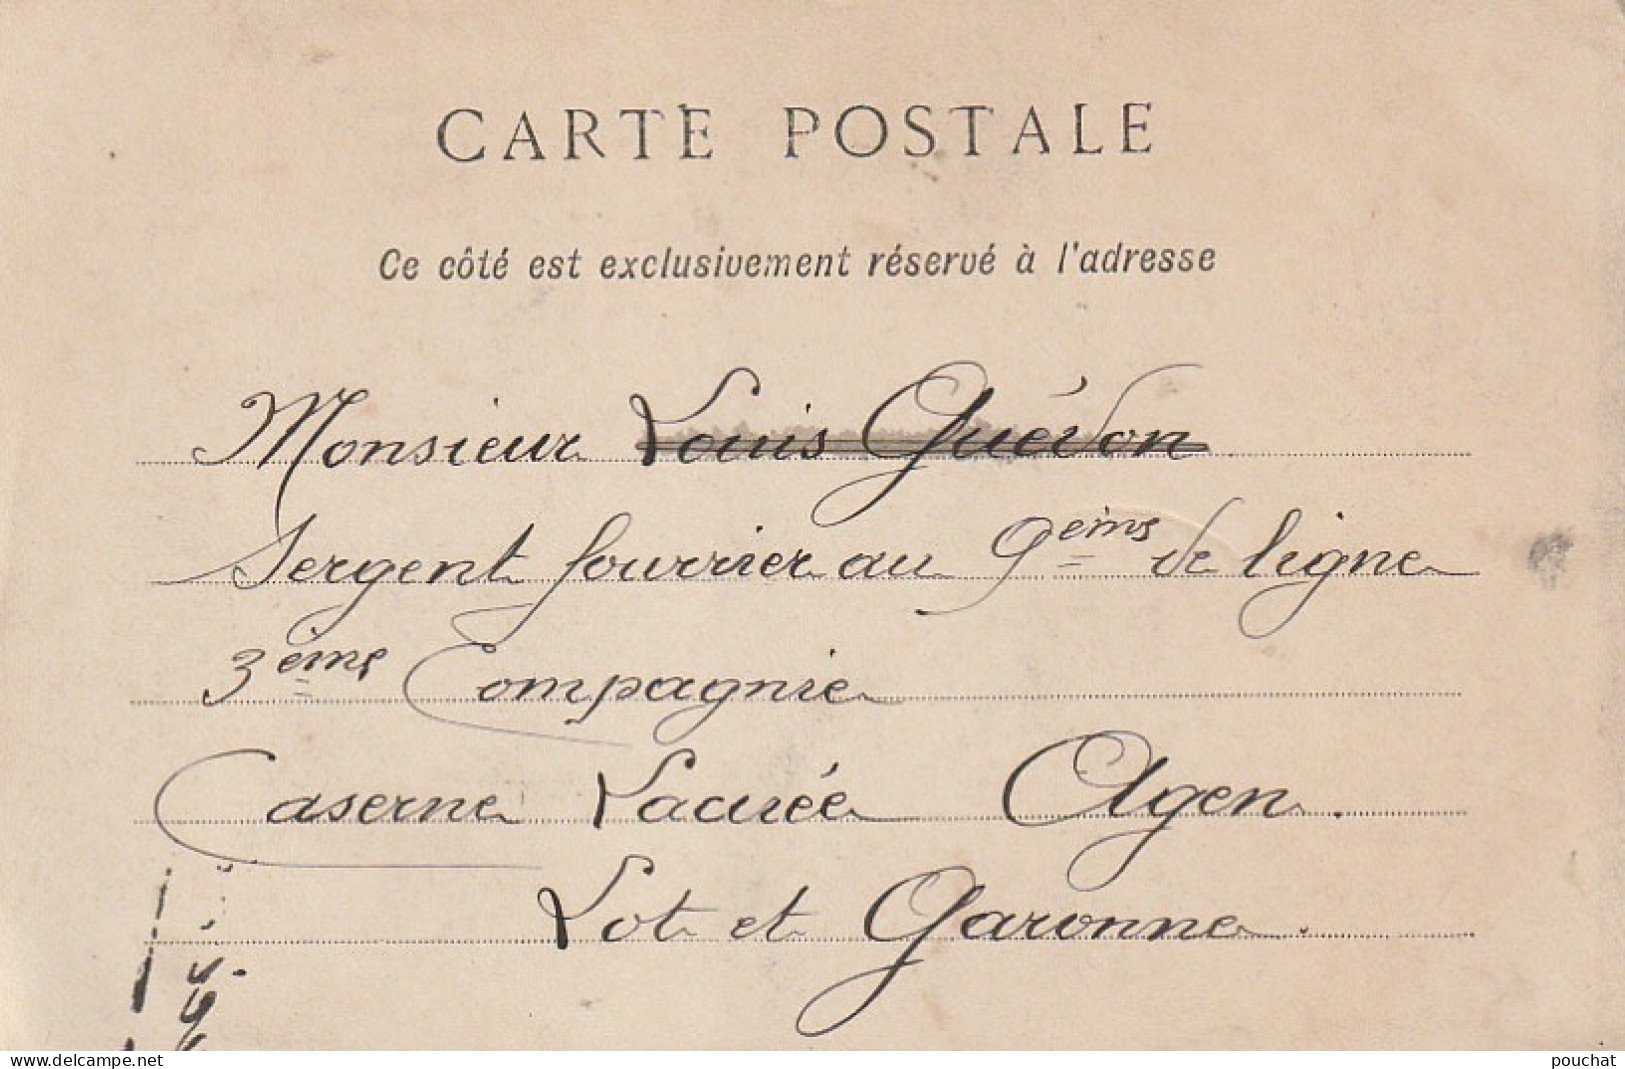 CARTE POSTALE
Ce côté est exclusivement réservé à l'adresse
Monsieur Louis Guédon
Sergent fourrier au 9ème de ligne
3ème Compagnie
Caserne Lacuée Agen.
Lot et Garonne.
www.delcampe.net
pouchat